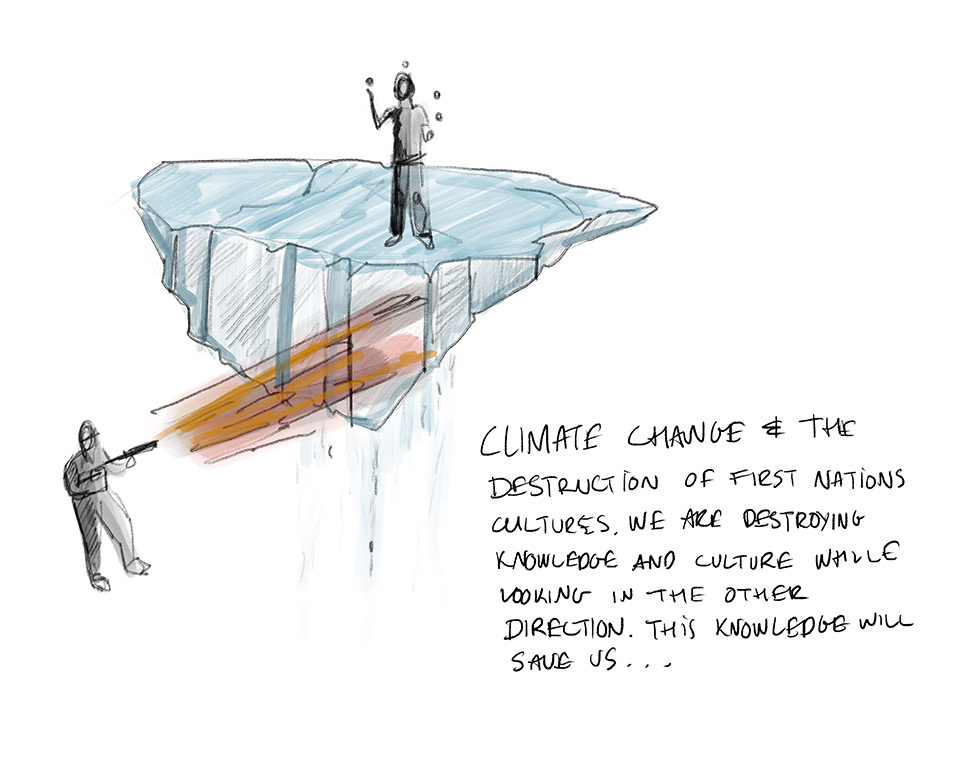 CLIMATE CHANGE & THE
DESTRUCTION OF FIRST NATIONS
CULTURES. WE ARE DESTROYING
KNOWLEDGE AND CULTURE WHILE
LOOKING IN THE OTHER
DIRECTION. THIS KNOWLEDGE WILL
SAVE US...